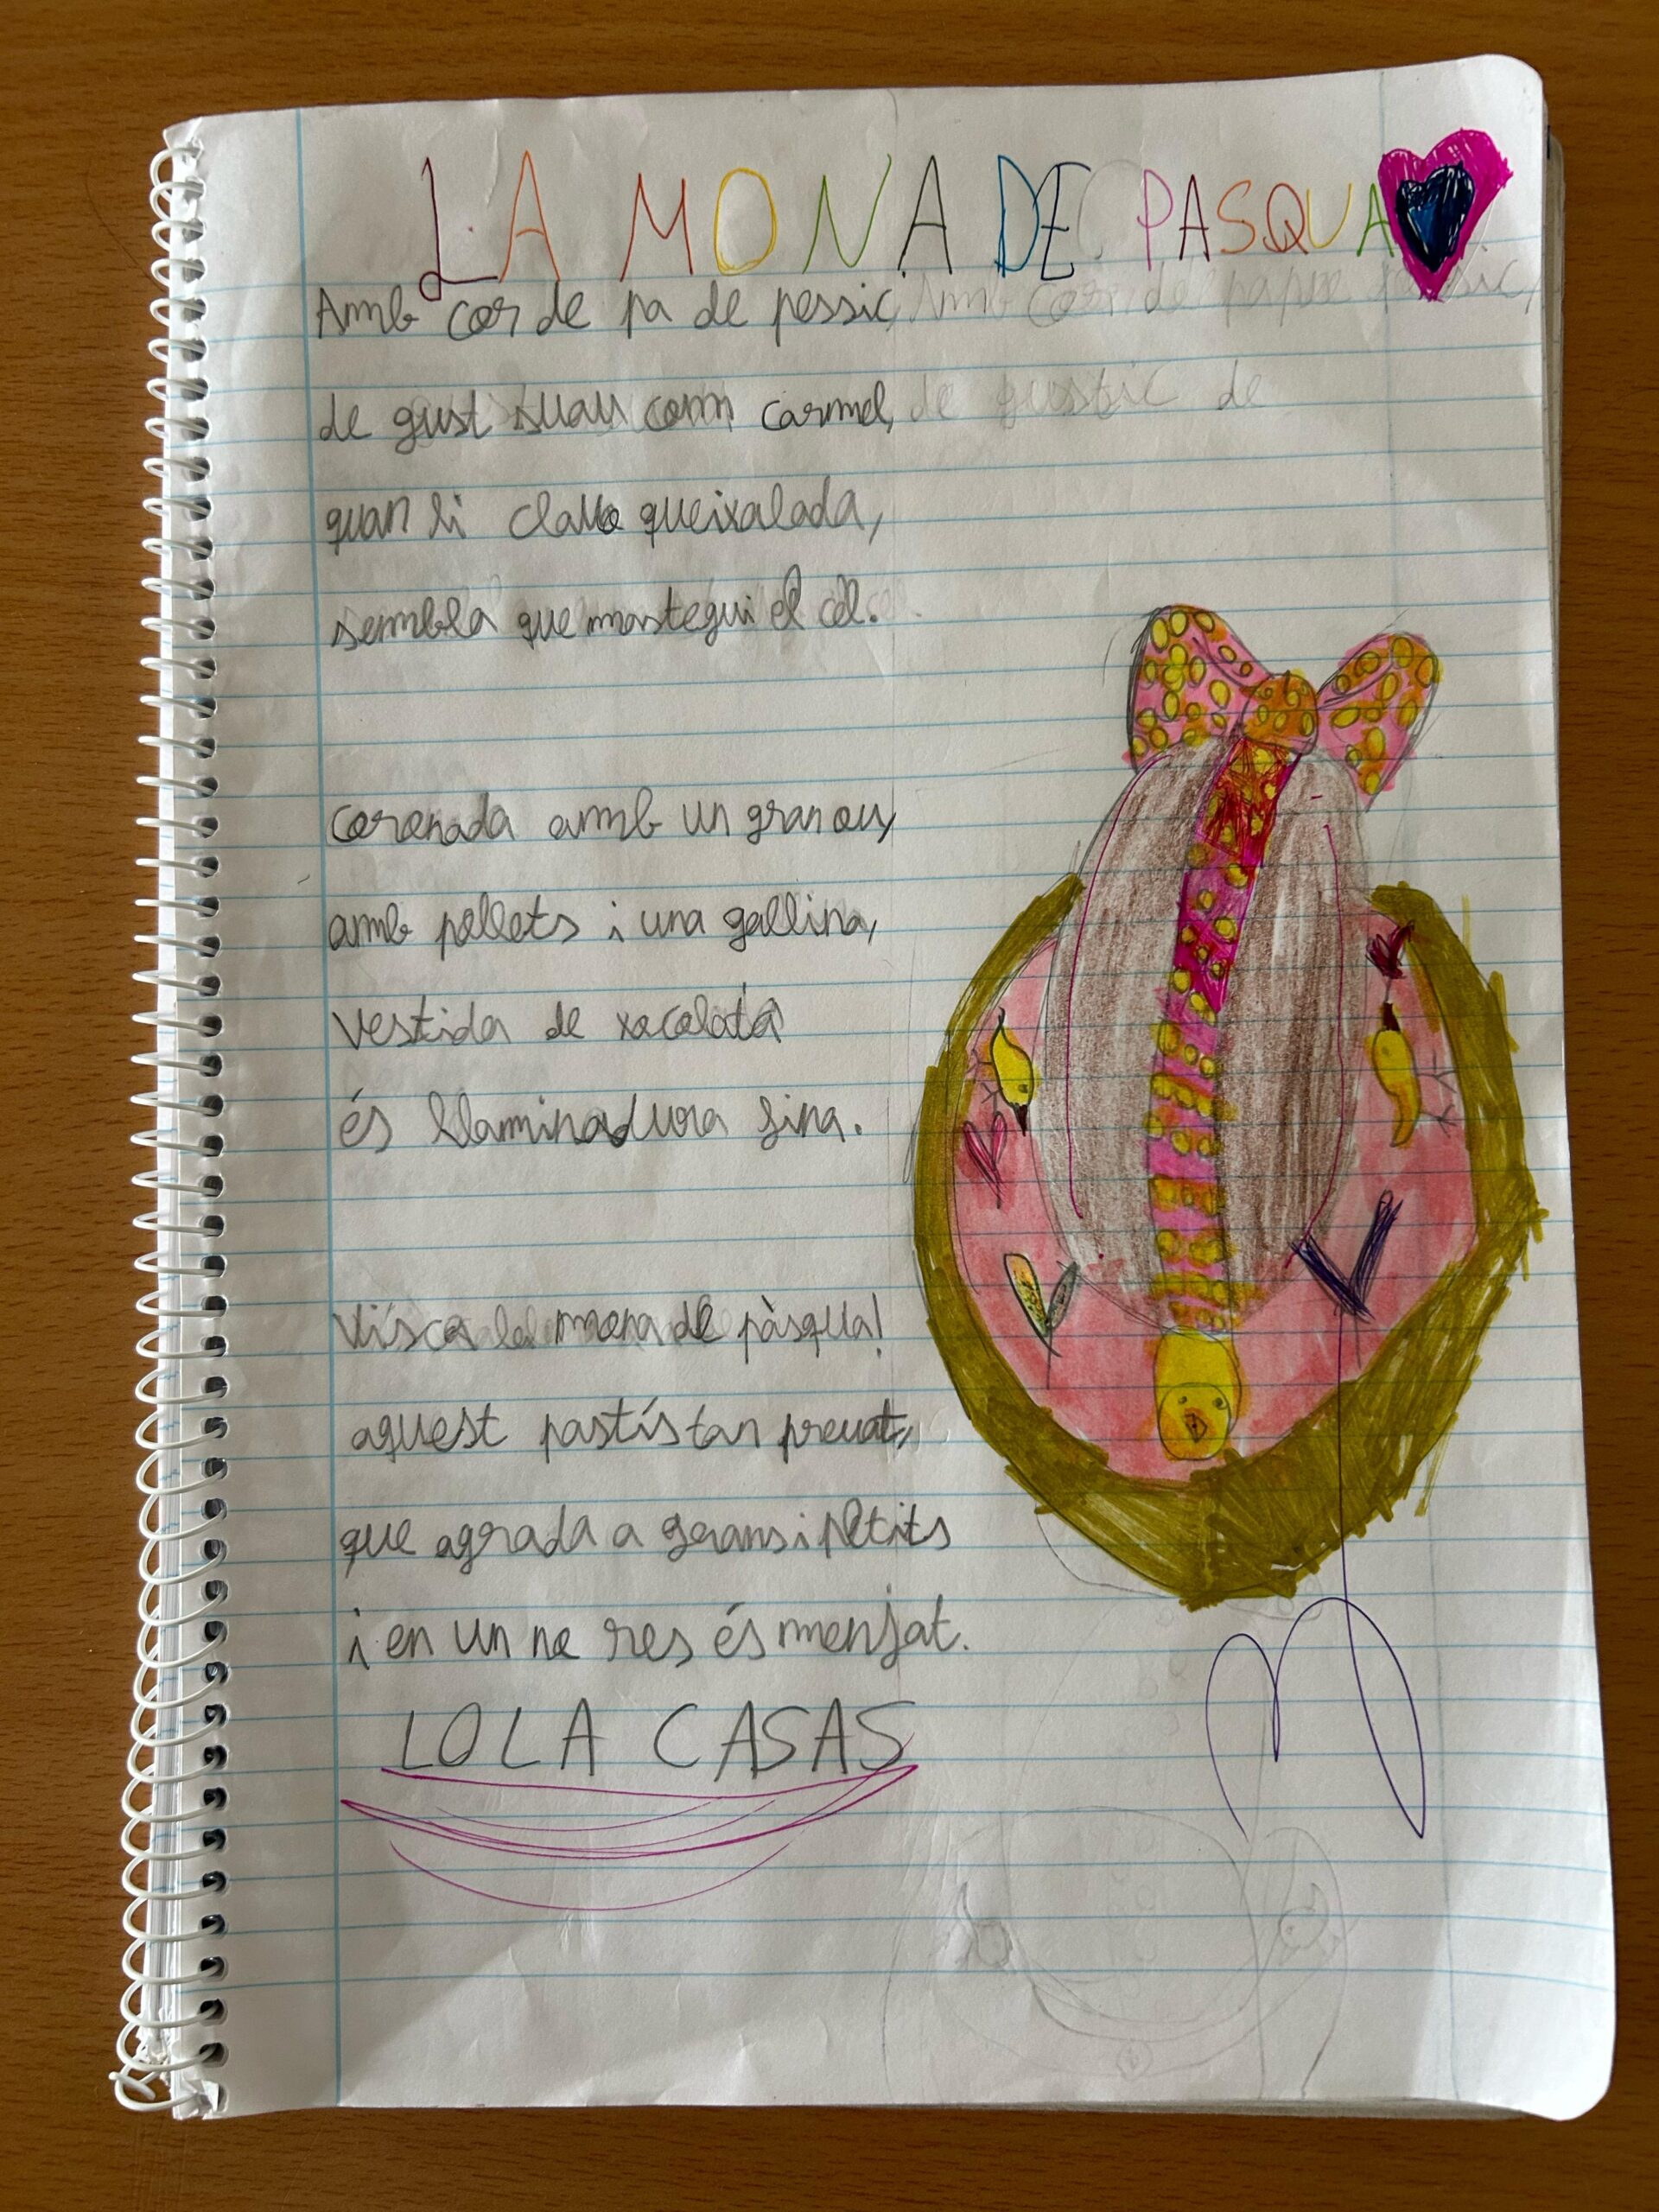 LA MONA DE PASQUA
Amb cor de pa de pessic,
de gust suau com carmel,
quan li clavo queixalada,
sembla que mastegui el cel.
coronada amb un gran ou,
amb pollets i una gallina,
vestida de xocolata
és llaminadura fina.
Visca la mona de pàsqua!
aquest pastís tan preuat,
que agrada a grans i petits
i en un no res és menjat.
LOLA CASAS